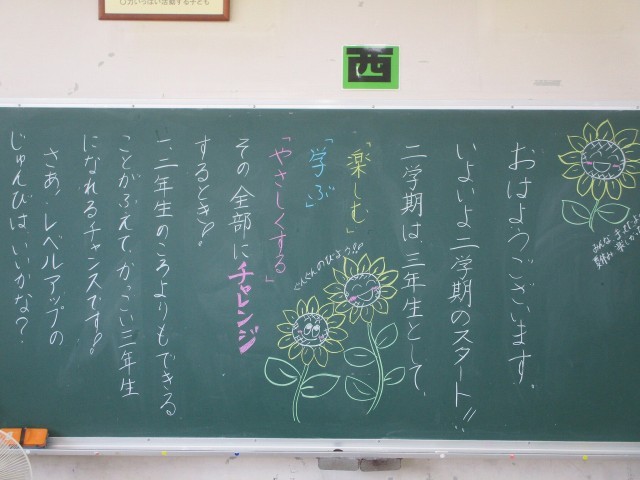 口力いっぱい活動する子ども
西
おはようございます。
いよいよ二学期のスタート!!
二学期は、三年生として、
「楽しむ」
「学ぶ」
「やさしくする」
その全部にチャレンジ
するとき!!
一、二年生のころよりもできる
ことがふえて、かっこいい三年生
になれるチャンスです!!
さあ、レベルアップの
じゅんびは、いいかな?
ぐんぐんのびよう!!!